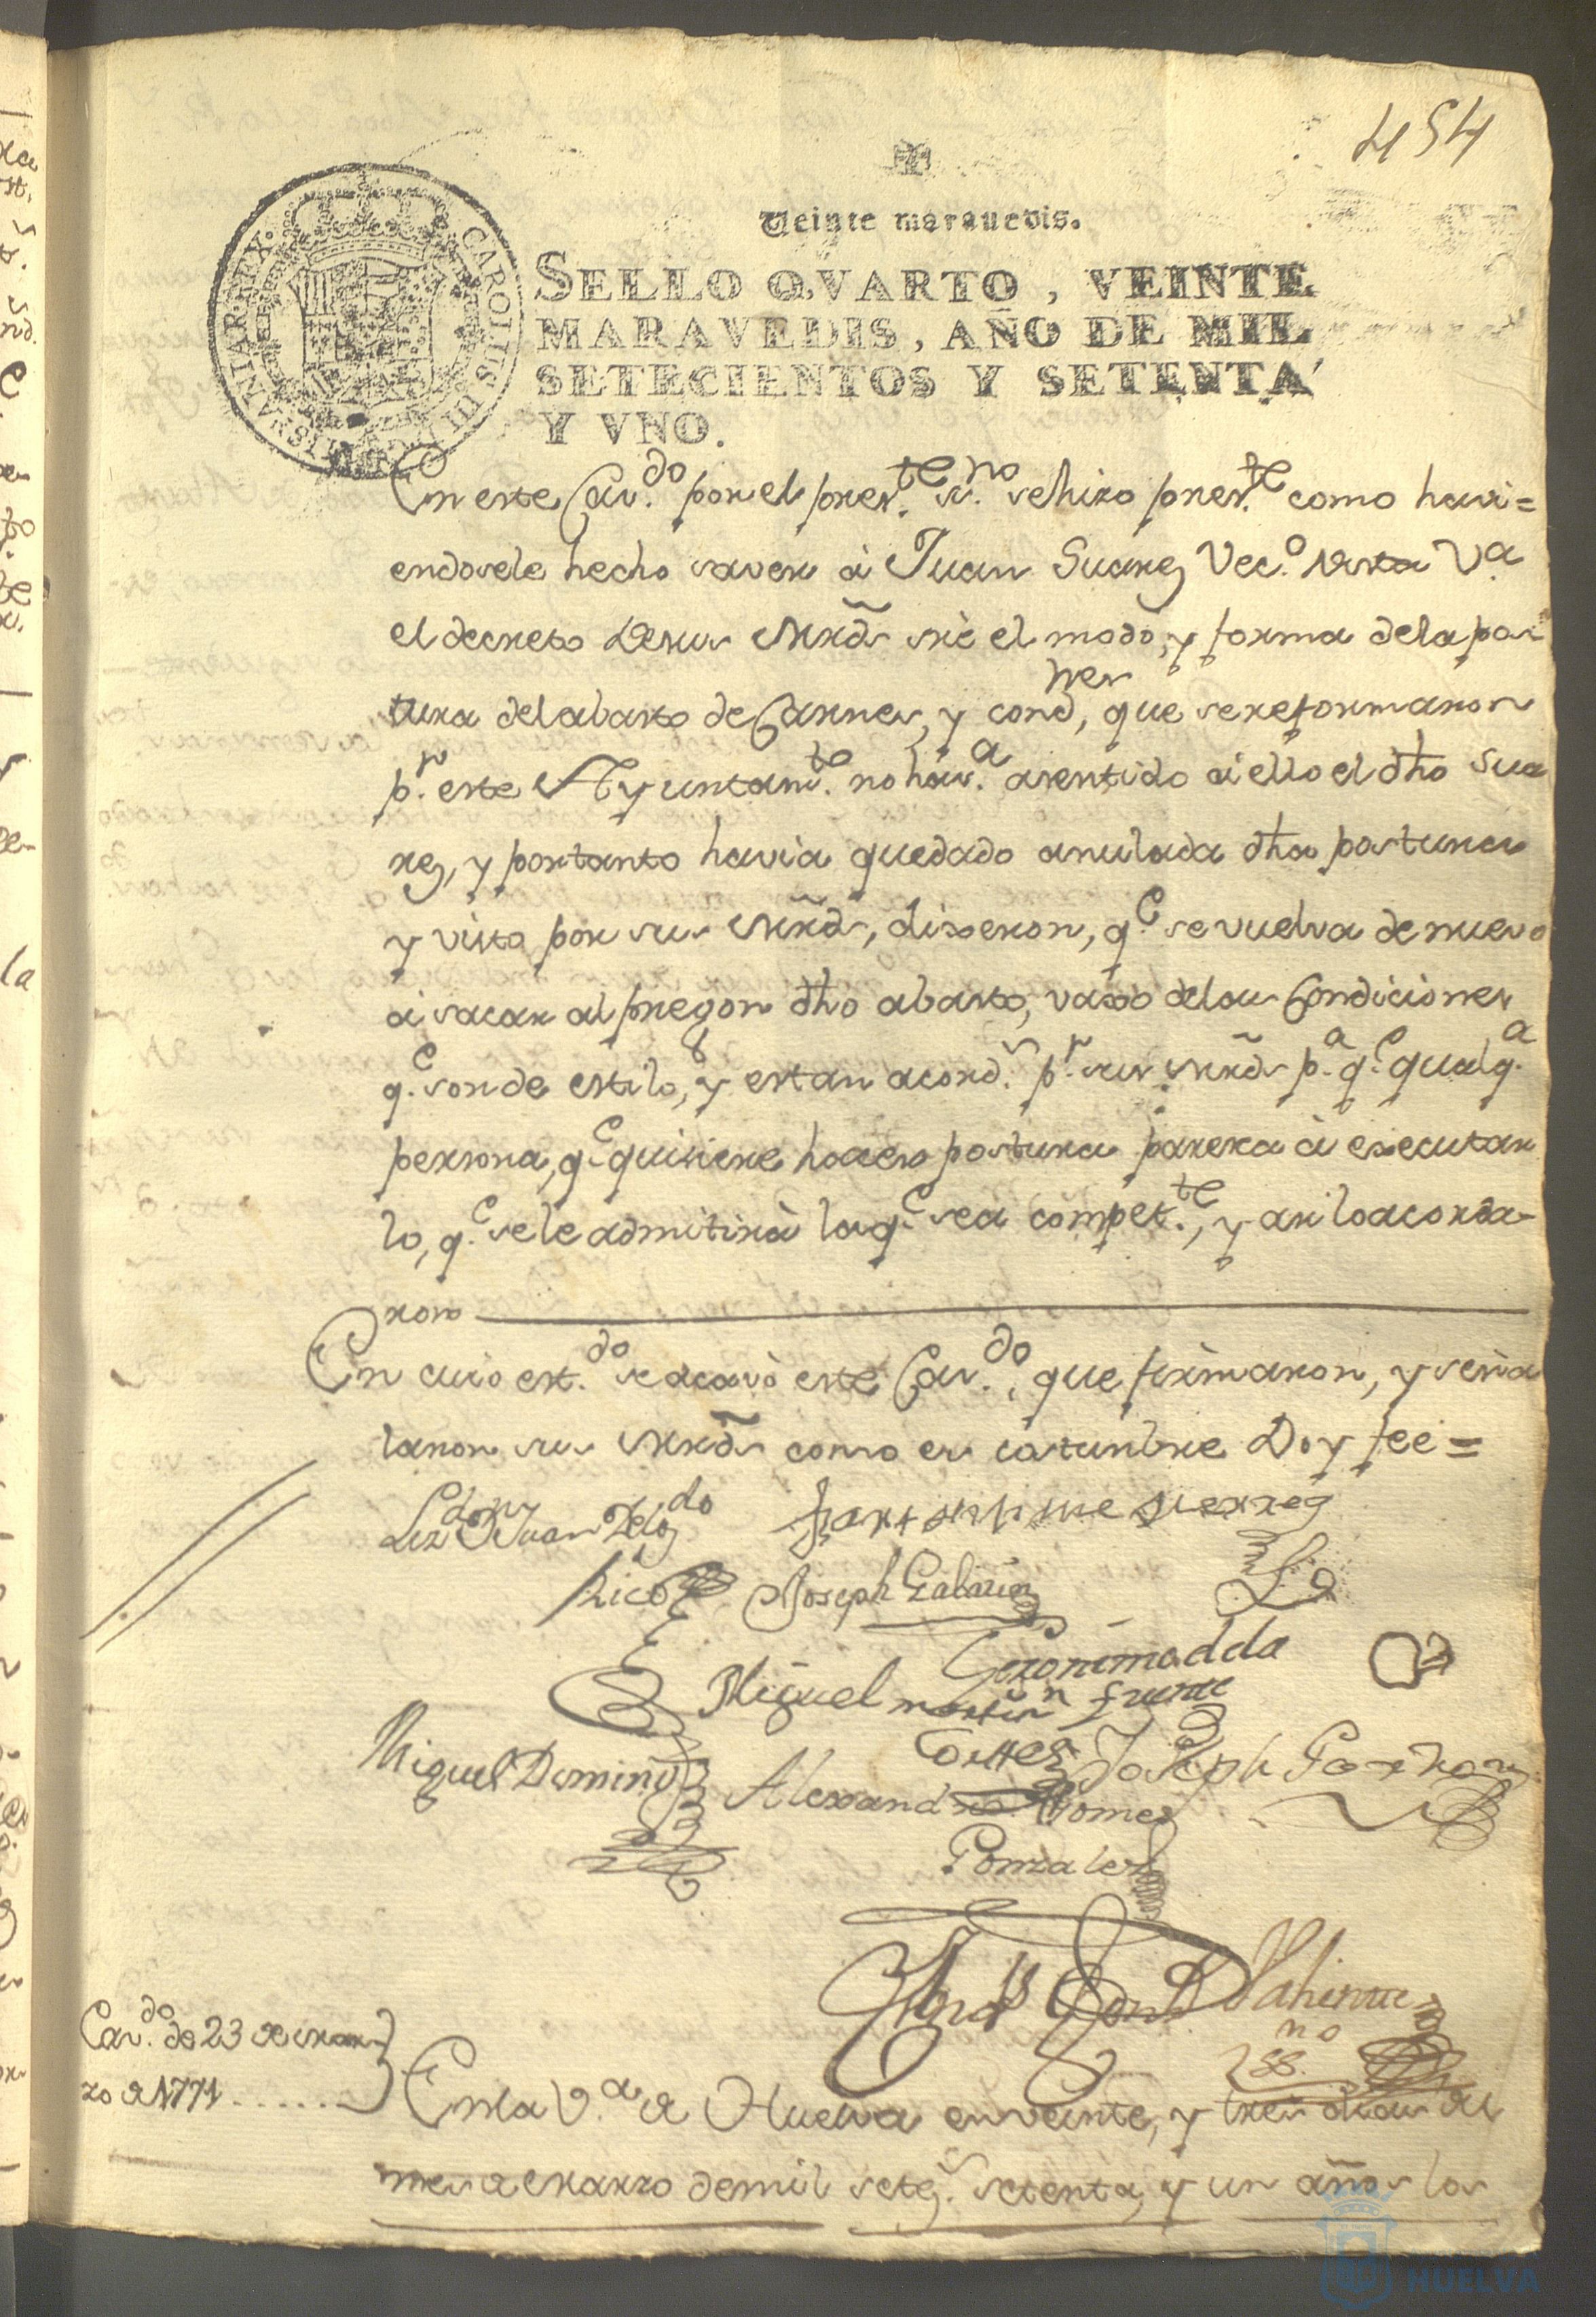 454
Veinte marauedis.
SELLO QVARTO, VEINTE
MARAVEDIS, AÑO DE MIL
SETECIENTOS Y SETENTA
Y VNO.
CAROLUS III HISPANIAR REX
En este Cav.do por el pres.te ss.no se hizo pres.te como havi=
endosele hecho saver â Juan Suarez Vec.o desta V.a
el decreto de sus Mrds̃ sre el modo, y forma de la pos
tura del abasto de Carnes, y cond.nes, que se reformaron
p.r este Ayuntam.to no hav.a asentido â ello el dho Sua
rez, y por tanto havia quedado anulada dha postura
y visto por sus Mrds̃, dixeron, q.e se vuelva de nuevo
â sacar al pregon dho abasto, vaxo de las Condiciones
q.e son de estilo, y estan acord.s p.r sus Mrds̃ p.a q.e qualq.a
persona, q.e quisiere hacer postura paresca â executar
lo, q.e se le admitirà la q.e sea compet.te, y asi lo acorda-
ron
En cuio est.do se acavò este Cav.do, que firmaron, y seña
laron sus Mrds̃ como es costumbre Doy fee=
Lizdo Dn Juan Delgdo
Rico
Joseph Gabarin
Geronimo d la
fuente
Miguel martin
Torres
Miguel Domin̄
Joseph Garzon
Alexandro Gomez
Gonzalez
ss.no
Cav.do de 23 de mar
zo d 1771
En la V.a d Huelva en veinte, y tres dias del
mes d Marzo de mil setez.s setenta, y un años los
HUELVA